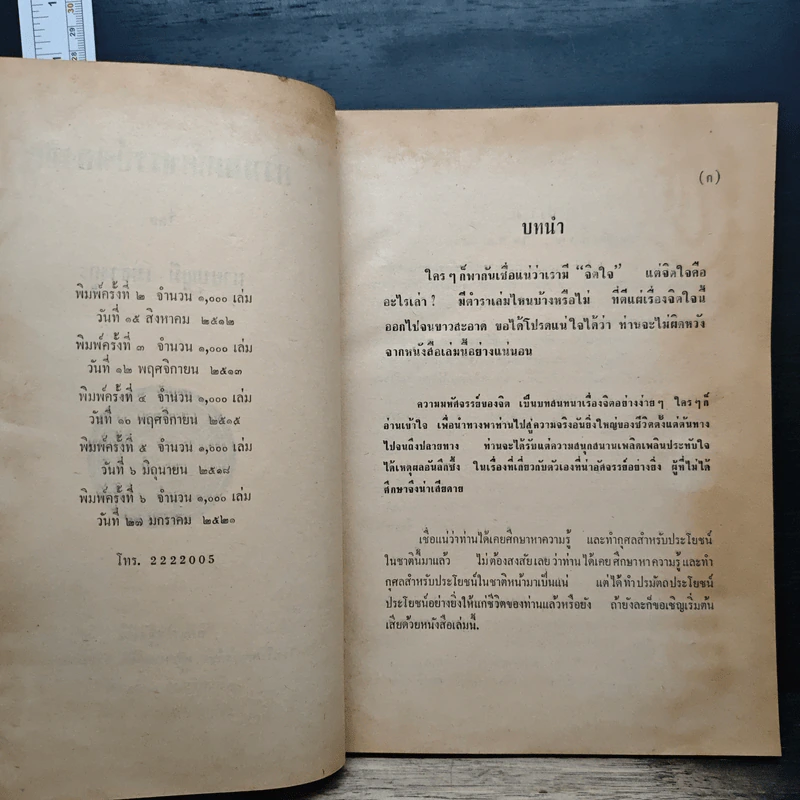 พิมพ์ครั้งที่ ๒ จำนวน ๑,๐๐๐ เล่ม
วันที่ ๑๕ สิงหาคม ๒๕๑๒
พิมพ์ครั้งที่ ๓ จำนวน ๑,๐๐๐ เล่ม
วันที่ ๑๒ พฤศจิกายน ๒๕๑๓
พิมพ์ครั้งที่ ๔ จำนวน ๑,๐๐๐ เล่ม
วันที่ ๑๐ พฤศจิกายน ๒๕๑๕
พิมพ์ครั้งที่ ๕ จำนวน ๑,๐๐๐ เล่ม
วันที่ ๖ มิถุนายน ๒๕๑๘
พิมพ์ครั้งที่ ๖ จำนวน ๑,๐๐๐ เล่ม
วันที่ ๒๗ มกราคม ๒๕๒๑
โทร. 2222005
(ก)
บทนำ
ใคร ๆ ก็พากันเชื่อแน่ว่าเรามี “จิตใจ” แต่จิตใจคือ
อะไรเล่า ? มีตำราเล่มไหนบ้างหรือไม่ ที่ตีแผ่เรื่องจิตใจนี้
ออกไปจนขาวสะอาด ขอได้โปรดแน่ใจได้ว่า ท่านจะไม่ผิดหวัง
จากหนังสือเล่มนี้อย่างแน่นอน
ความมหัศจรรย์ของจิต เป็นบทสนทนาเรื่องจิตอย่างง่าย ๆ ใคร ๆ ก็
อ่านเข้าใจ เพื่อนำทางพาท่านไปสู่ความจริงอันยิ่งใหญ่ของชีวิตตั้งแต่ต้นทาง
ไปจนถึงปลายทาง ท่านจะได้รับแต่ความสนุกสนานเพลิดเพลินประทับใจ
ได้เหตุผลอันลึกซึ้ง ในเรื่องที่เกี่ยวกับตัวเองที่น่าอัศจรรย์อย่างยิ่ง ผู้ที่ไม่ได้
ศึกษาจึงน่าเสียดาย
เชื่อแน่ว่าท่านได้เคยศึกษาหาความรู้ และทำกุศลสำหรับประโยชน์
ในชาตินี้มาแล้ว ไม่ต้องสงสัยเลยว่าท่านได้เคยศึกษาหาความรู้และทำ
กุศลสำหรับประโยชน์ในชาติหน้ามาเป็นแน่ แต่ได้ทำปรมัตถประโยชน์
ประโยชน์อย่างยิ่งให้แก่ชีวิตของท่านแล้วหรือยัง ถ้ายังละก็ขอเชิญเริ่มต้น
เสียด้วยหนังสือเล่มนี้.
28
29
30